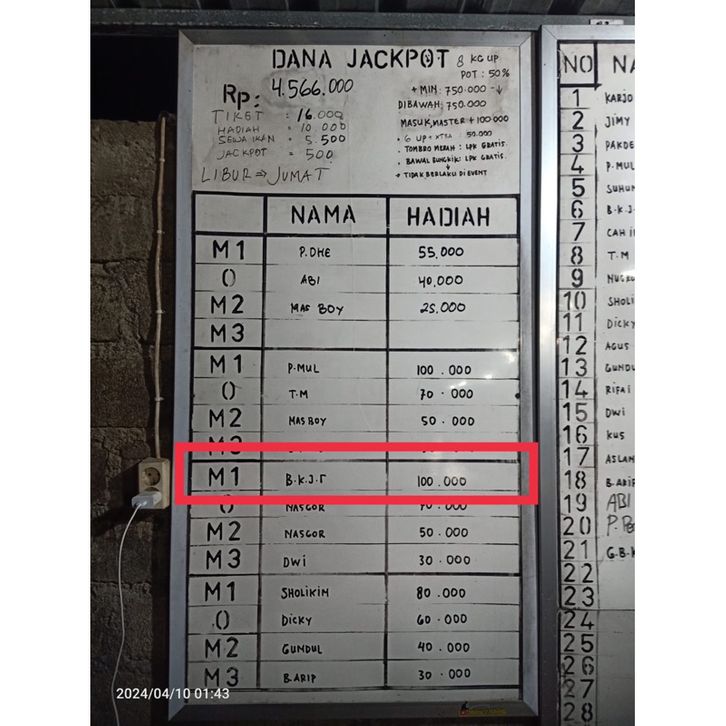 DANA JACKPOT 8 KG UP
POT : 50%
Rp: 4.566.000
TIKET : 16.000
HADIAH = 10.000
SEWA IKAN = 5.500
JACKPOT = 500
LIBUR ⇒ JUMAT
+ MIN : 750.000 -↓
DIBAWAH : 750.000
MASUK, MASTER + 100 000
• 6 UP + XTRA : 50.000
• TOMBRO MERAH : LPK GRATIS.
• BAWAL BUNGKIK : LPK GRATIS.
↓
+ TIDAK BERLAKU DI EVENT
NAMA HADIAH
M1 P.DHE 55.000
0 ABI 40.000
M2 MAS BOY 25.000
M3
M1 P.MUL 100.000
0 T.M 70.000
M2 MAS BOY 50.000
M3
M1 B.K.J.T 100.000
0 NASGOR 70.000
M2 NASGOR 50.000
M3 DWI 30.000
M1 SHOLIKIM 80.000
0 DICKY 60.000
M2 GUNDUL 40.000
M3 B.ARIP 30.000
NO NA
1 KARJO
2 JIMY
3 PAKDE
4 P.MUL
5 SUHUN
6 B.K.J.
7 CAH
8 T.M
9
10 SHOLI
11 DICKY
12 AGUS
13 GUNDU
14 RIFAI
15 DWI
16 KUS
17 ASLAM
18 B.ARIP
19 ABI
20
21 G.B.K
22
23
24
25
26
27
28
2024/04/10 01:43